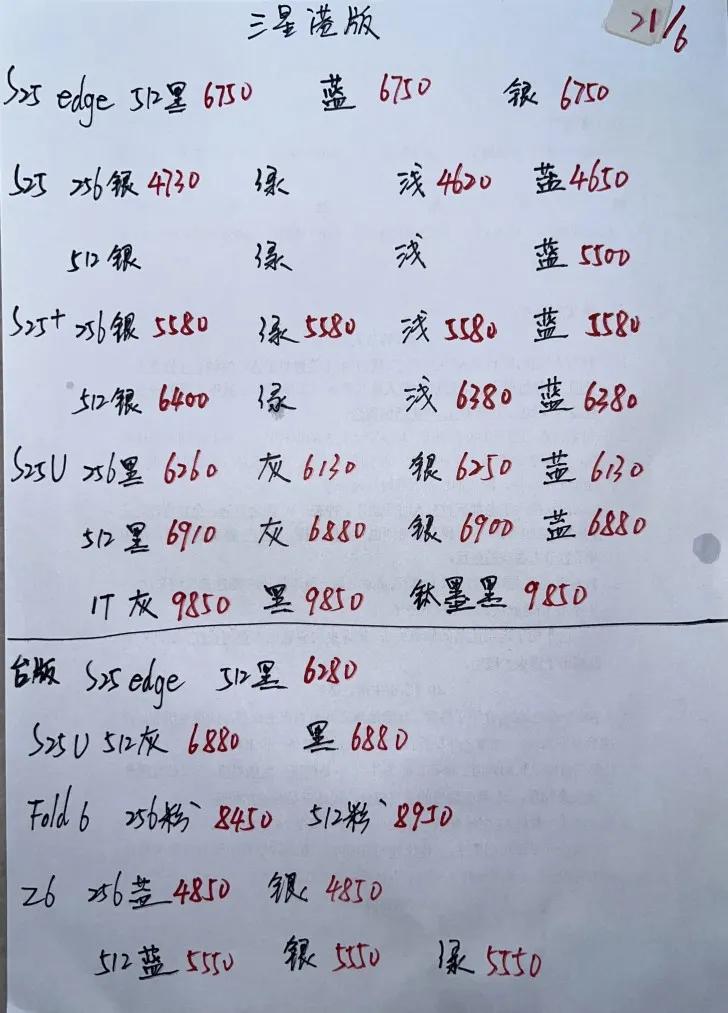 三星港版 21/6
S25 edge 512黑 6750 蓝 6750 银 6750
S25 256银 4730 绿 浅 4620 蓝 4650
512银 绿 浅 蓝 5500
S25+ 256银 5580 绿 5580 浅 5580 蓝 5580
512银 6400 绿 浅 6380 蓝 6380
S25U 256黑 6260 灰 6130 银 6250 蓝 6130
512黑 6910 灰 6880 银 6900 蓝 6880
1T 灰 9850 黑 9850 钛墨黑 9850
台版 S25 edge 512黑 6280
S25U 512灰 6880 黑 6880
Fold 6 256粉 8450 512粉 8950
Z6 256蓝 4850 银 4850
512蓝 5550 银 5550 绿 5550